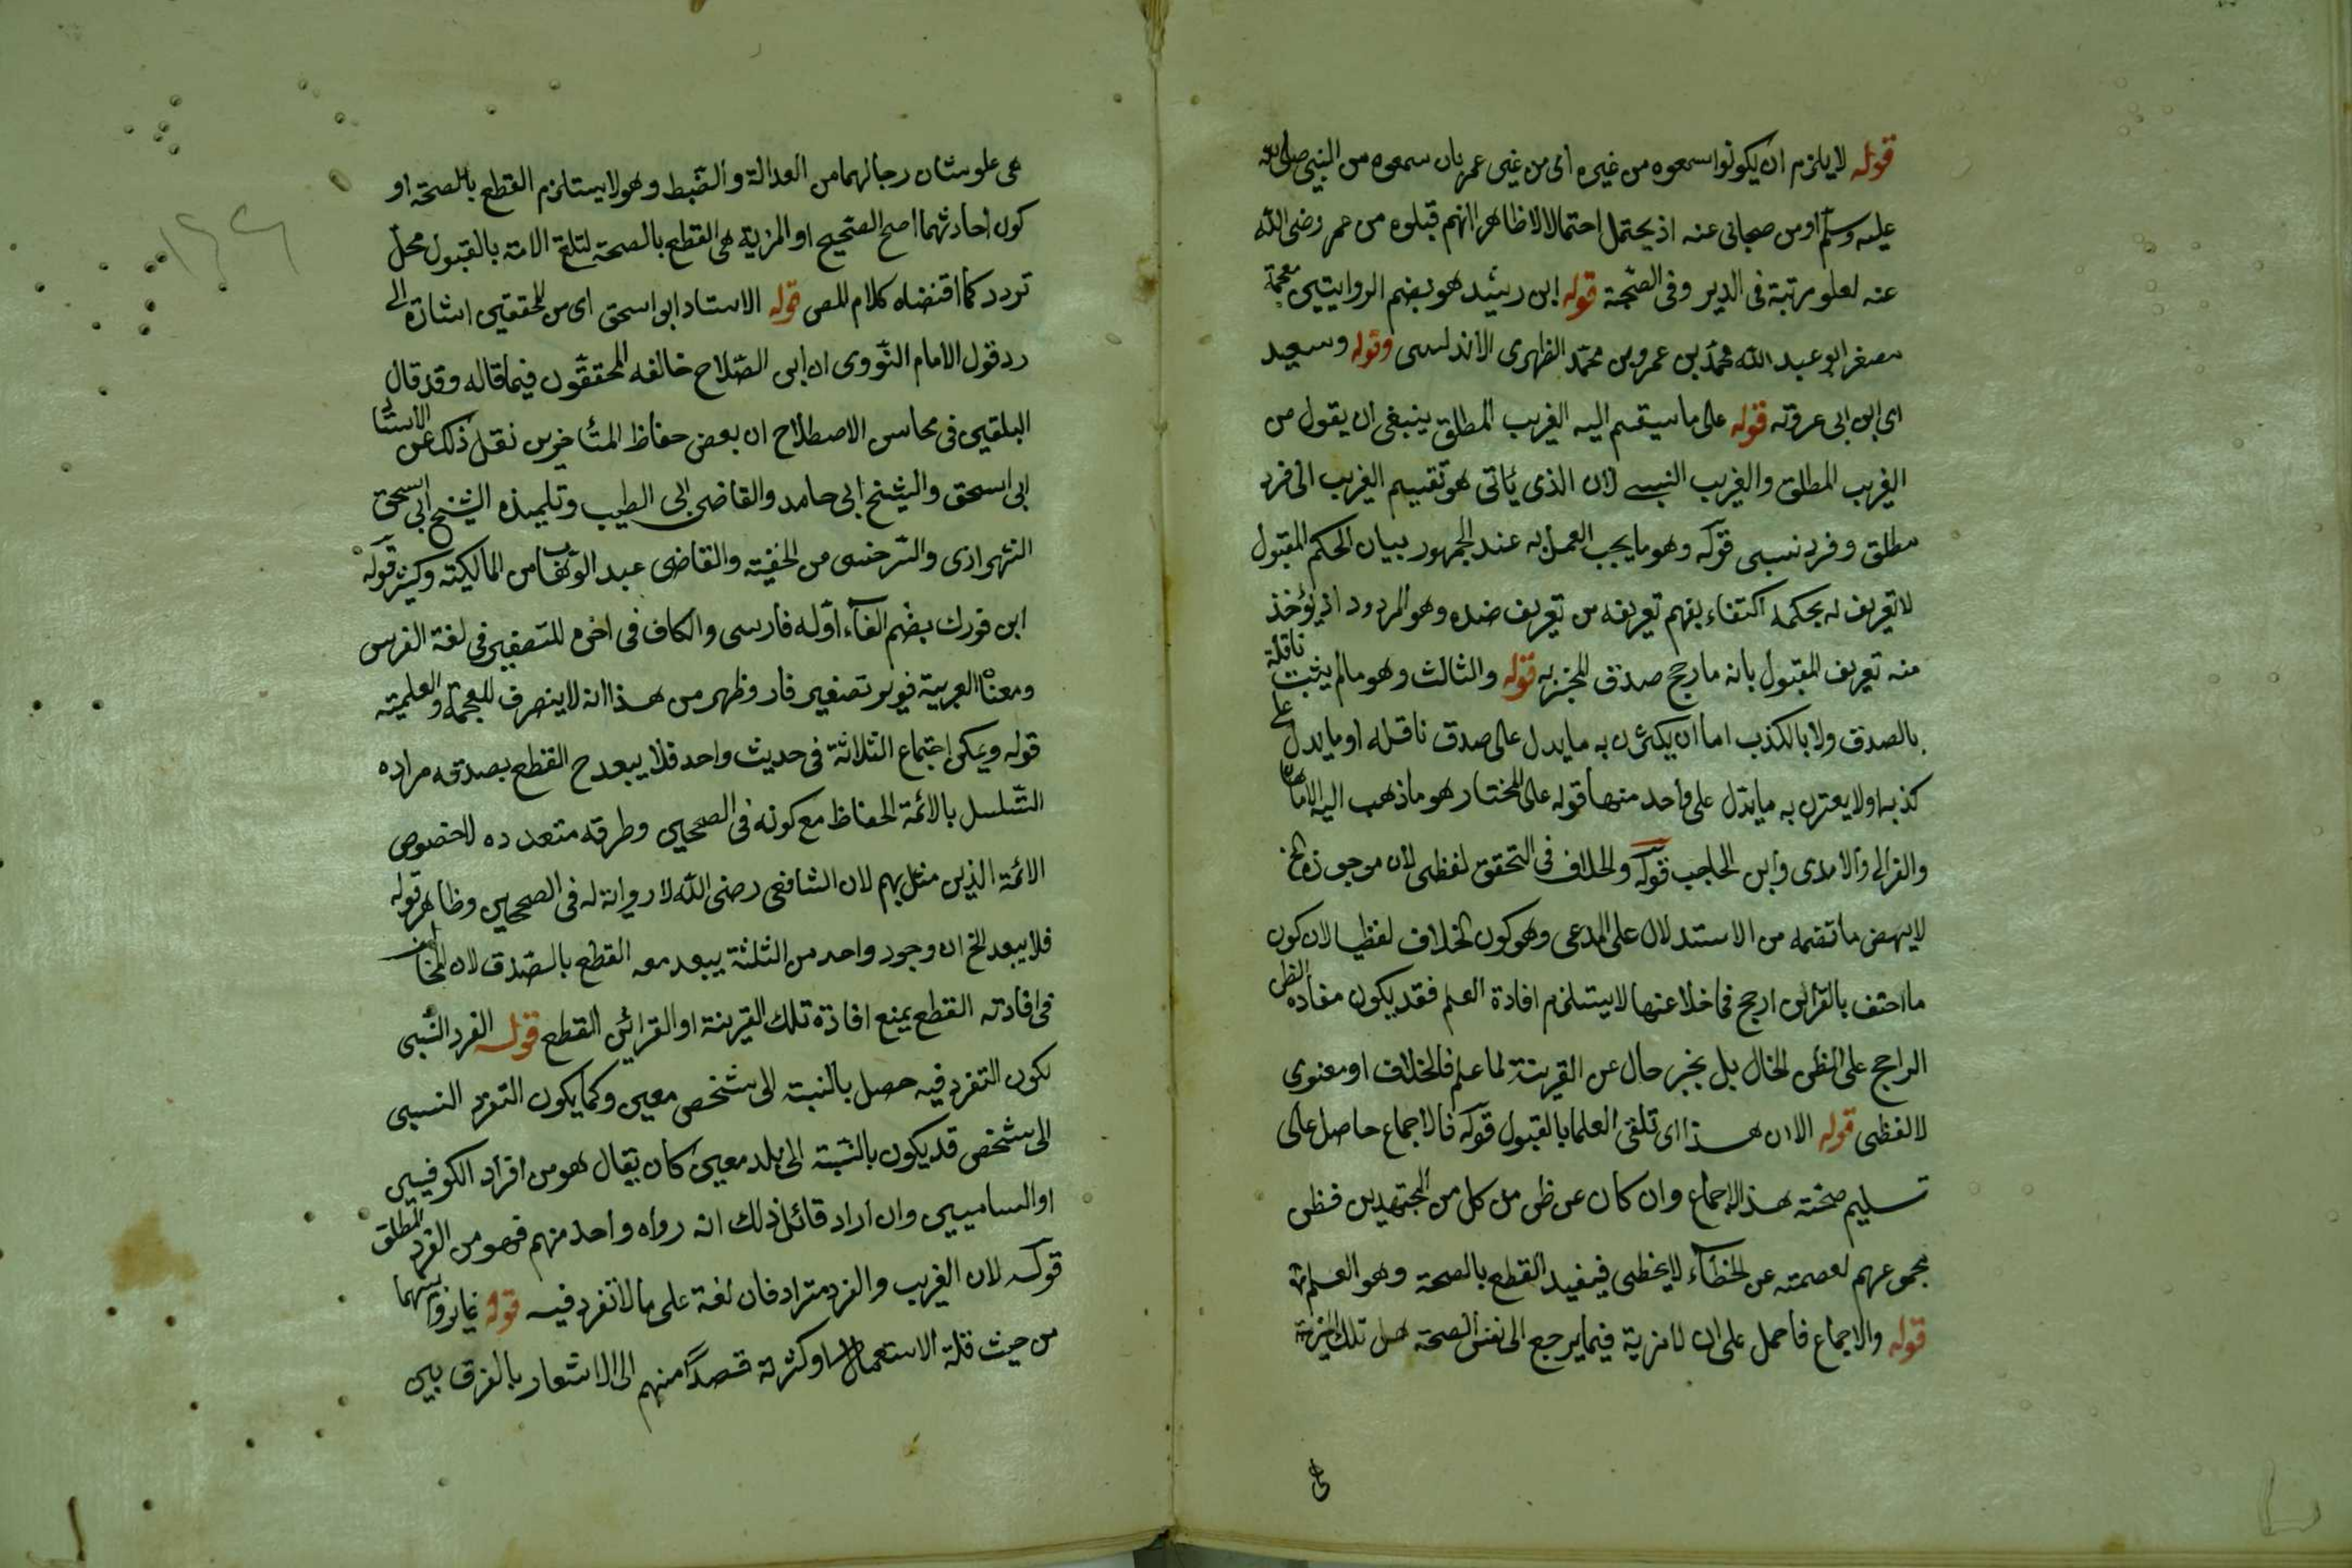 قوله لا يلزم ان يكونوا سمعوه من غيره اى من غير عمر بان سمعوه من النبى صلى الله
عليه وسلم او من صحابى عنه اذ يحتمل احتمالا لا ظاهرا انهم قبلوه من عمر رضى الله
عنه لعلو مرتبة فى الدير وفى الصحبة قوله ابن رشيد هو بضم الروايتين معجمة
مصغر ابو عبد الله محمد بن عمر وبن محمد الظهرى الاندلسى وقوله وسعيد
اى ابن ابى عروته قوله على ما سيقسم اليه الغريب المطلق ينبغى ان يقول من
الغريب المطلق والغريب النسبى لان الذى ياتى هو تقسيم الغريب الى فرد
مطلق وفرد نسبى قوله وهو ما يجب العمل به عند الجمهور بيان الحكم المقبول
لا تعريف له بحكمه اكتفاء بفهم تعريفه من تعريف ضده وهو المردود اذ يؤخذ
منه تعريف المقبول بانه ما رجح صدق المخبر به قوله والثالث وهو ما لم يثبت ناقلة
بالصدق ولا بالكذب اما ان يكون به ما يدل على صدق ناقله او ما يدل على
كذبه او لا يعترى به ما يدل على واحد منهما قوله على المختار هو ما ذهب اليه الامامان
والغزالى والامدى وابن الحاجب قوله والخلاف فى التحقق لفظى لان من جوز الخ
لا ينهض ما تضمه من الاستدلال على المدعى وهو كون الخلاف لفظيا لان كون
ما احتف بالقرائن ارجح مما خلا عنها لا يستلزم افادة العلم فقد يكون مفاده الظن
الراجح على الظن الحال بل بخبر حال عن القرينة لما علم فالخلاف او معنوى
لا لفظى قوله الا ان هذا اى تلقى العلما بالقبول قوله فالاجماع حاصل على
تسليم صحته هذا الاجماع وان كان عن ظن من كل من المجتهدين فظن
مجموعهم لعصمته عن الخطاء لا يخطى فيفيد القطع بالصحة وهو العلم
قوله والاجماع فاحمل على ان لا مزية فيما يرجع الى نفس الصحة هل تلك المزية
هى علو شان رجالهما من العدالة والضبط وهو لا يستلزم القطع بالصحة او
كون احادثهما اصح الصحيح او المزية هى القطع بالصحة لتلقى الامة بالقبول محل
تردد كما اقتضاه كلام المص قوله الاستاد ابو اسحق اى من المحققين اشارة الى
رد قول الامام النووى ان ابى الصلاح خالفه المحققون فيما قاله وقد قال
البلقينى فى محاسن الاصطلاح ان بعض حفاظ المتأخرين نقل ذلك عن الأستا
ابى اسحق والشيخ ابى حامد والقاضى ابى الطيب وتلميذه الشيخ ابى اسحق
الشيرازى والسرخسى من الحنفية والقاضى عبد الوهاب من المالكية وكثير قوله
ابن فورك بضم الفاء اوله فارسى والكاف فى اخره للتصغير فى لغة الفرس
ومعناه العربية فوير تصغير فار وظهر من هذا انه لا ينصرف للعجمة والعلمية
قوله ويمكن اجتماع الثلاثة فى حديث واحد فلا يبعد ح القطع بصدقه مراده
التسلسل بالائمة الحفاظ مع كونه فى الصحيحين وطرقه متعدده لا خصوص
الائمة الذين مثل بهم لان الشافعى رضى الله لا رواية له فى الصحيحين وظاهر قوله
فلا يبعد الخ ان وجود واحد من الثلثة يبعد معه القطع بالصدق لان المخالف
فى افادته القطع يمنع افادة تلك القرينة او القرائن القطع قوله الفرد النسبى
يكون التفرد فيه حصل بالنسبة الى شخص معين وكما يكون التفرد النسبى
الى شخص قد يكون بالنسبة الى بلد معين كان يقال هو من افراد الكوفيين
او الساميين وان اراد قائل ذلك انه رواه واحد منهم فهو من الفرد المطلق
قوله لان الغريب والفرد مترادفان لغة على ما لا تفرد فيه قوله غايروا بينهما
من حيث قلة الاستعمال او كثرته قصدا منهم الى الاشعار بالفرق بين